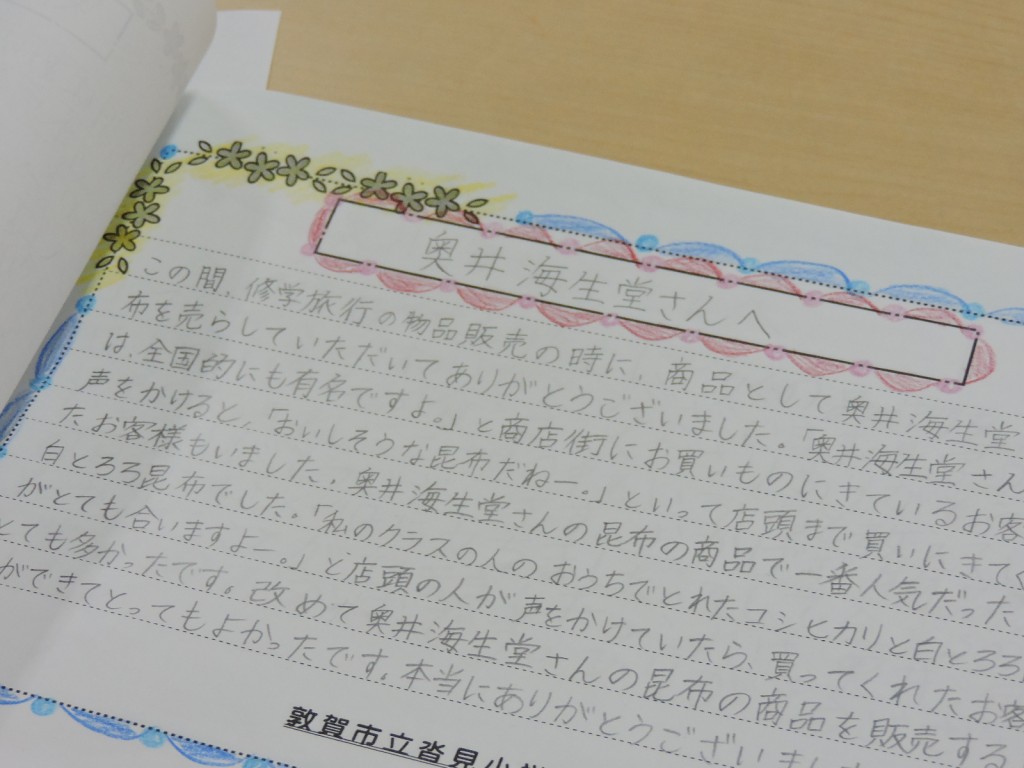 奥井海生堂さんへ
この間、修学旅行の物品販売の時に、商品として奥井海生堂
布を売らしていただいてありがとうございました。「奥井海生堂さん
は、全国的にも有名ですよ。」と商店街にお買いものにきているお客
声をかけると、「おいしそうな昆布だねー。」といって店頭まで買いにきてく
たお客様もいました。奥井海生堂さんの昆布の商品で一番人気だった
白とろろ昆布でした。「私のクラスの人のおうちでとれたコシヒカリと白とろろ
がとても合いますよー。」と店頭の人が声をかけていたら、買ってくれたお客
とても多かったです。改めて奥井海生堂さんの昆布の商品を販売する
ができてとってもよかったです。本当にありがとうございまし
敦賀市立沓見小学